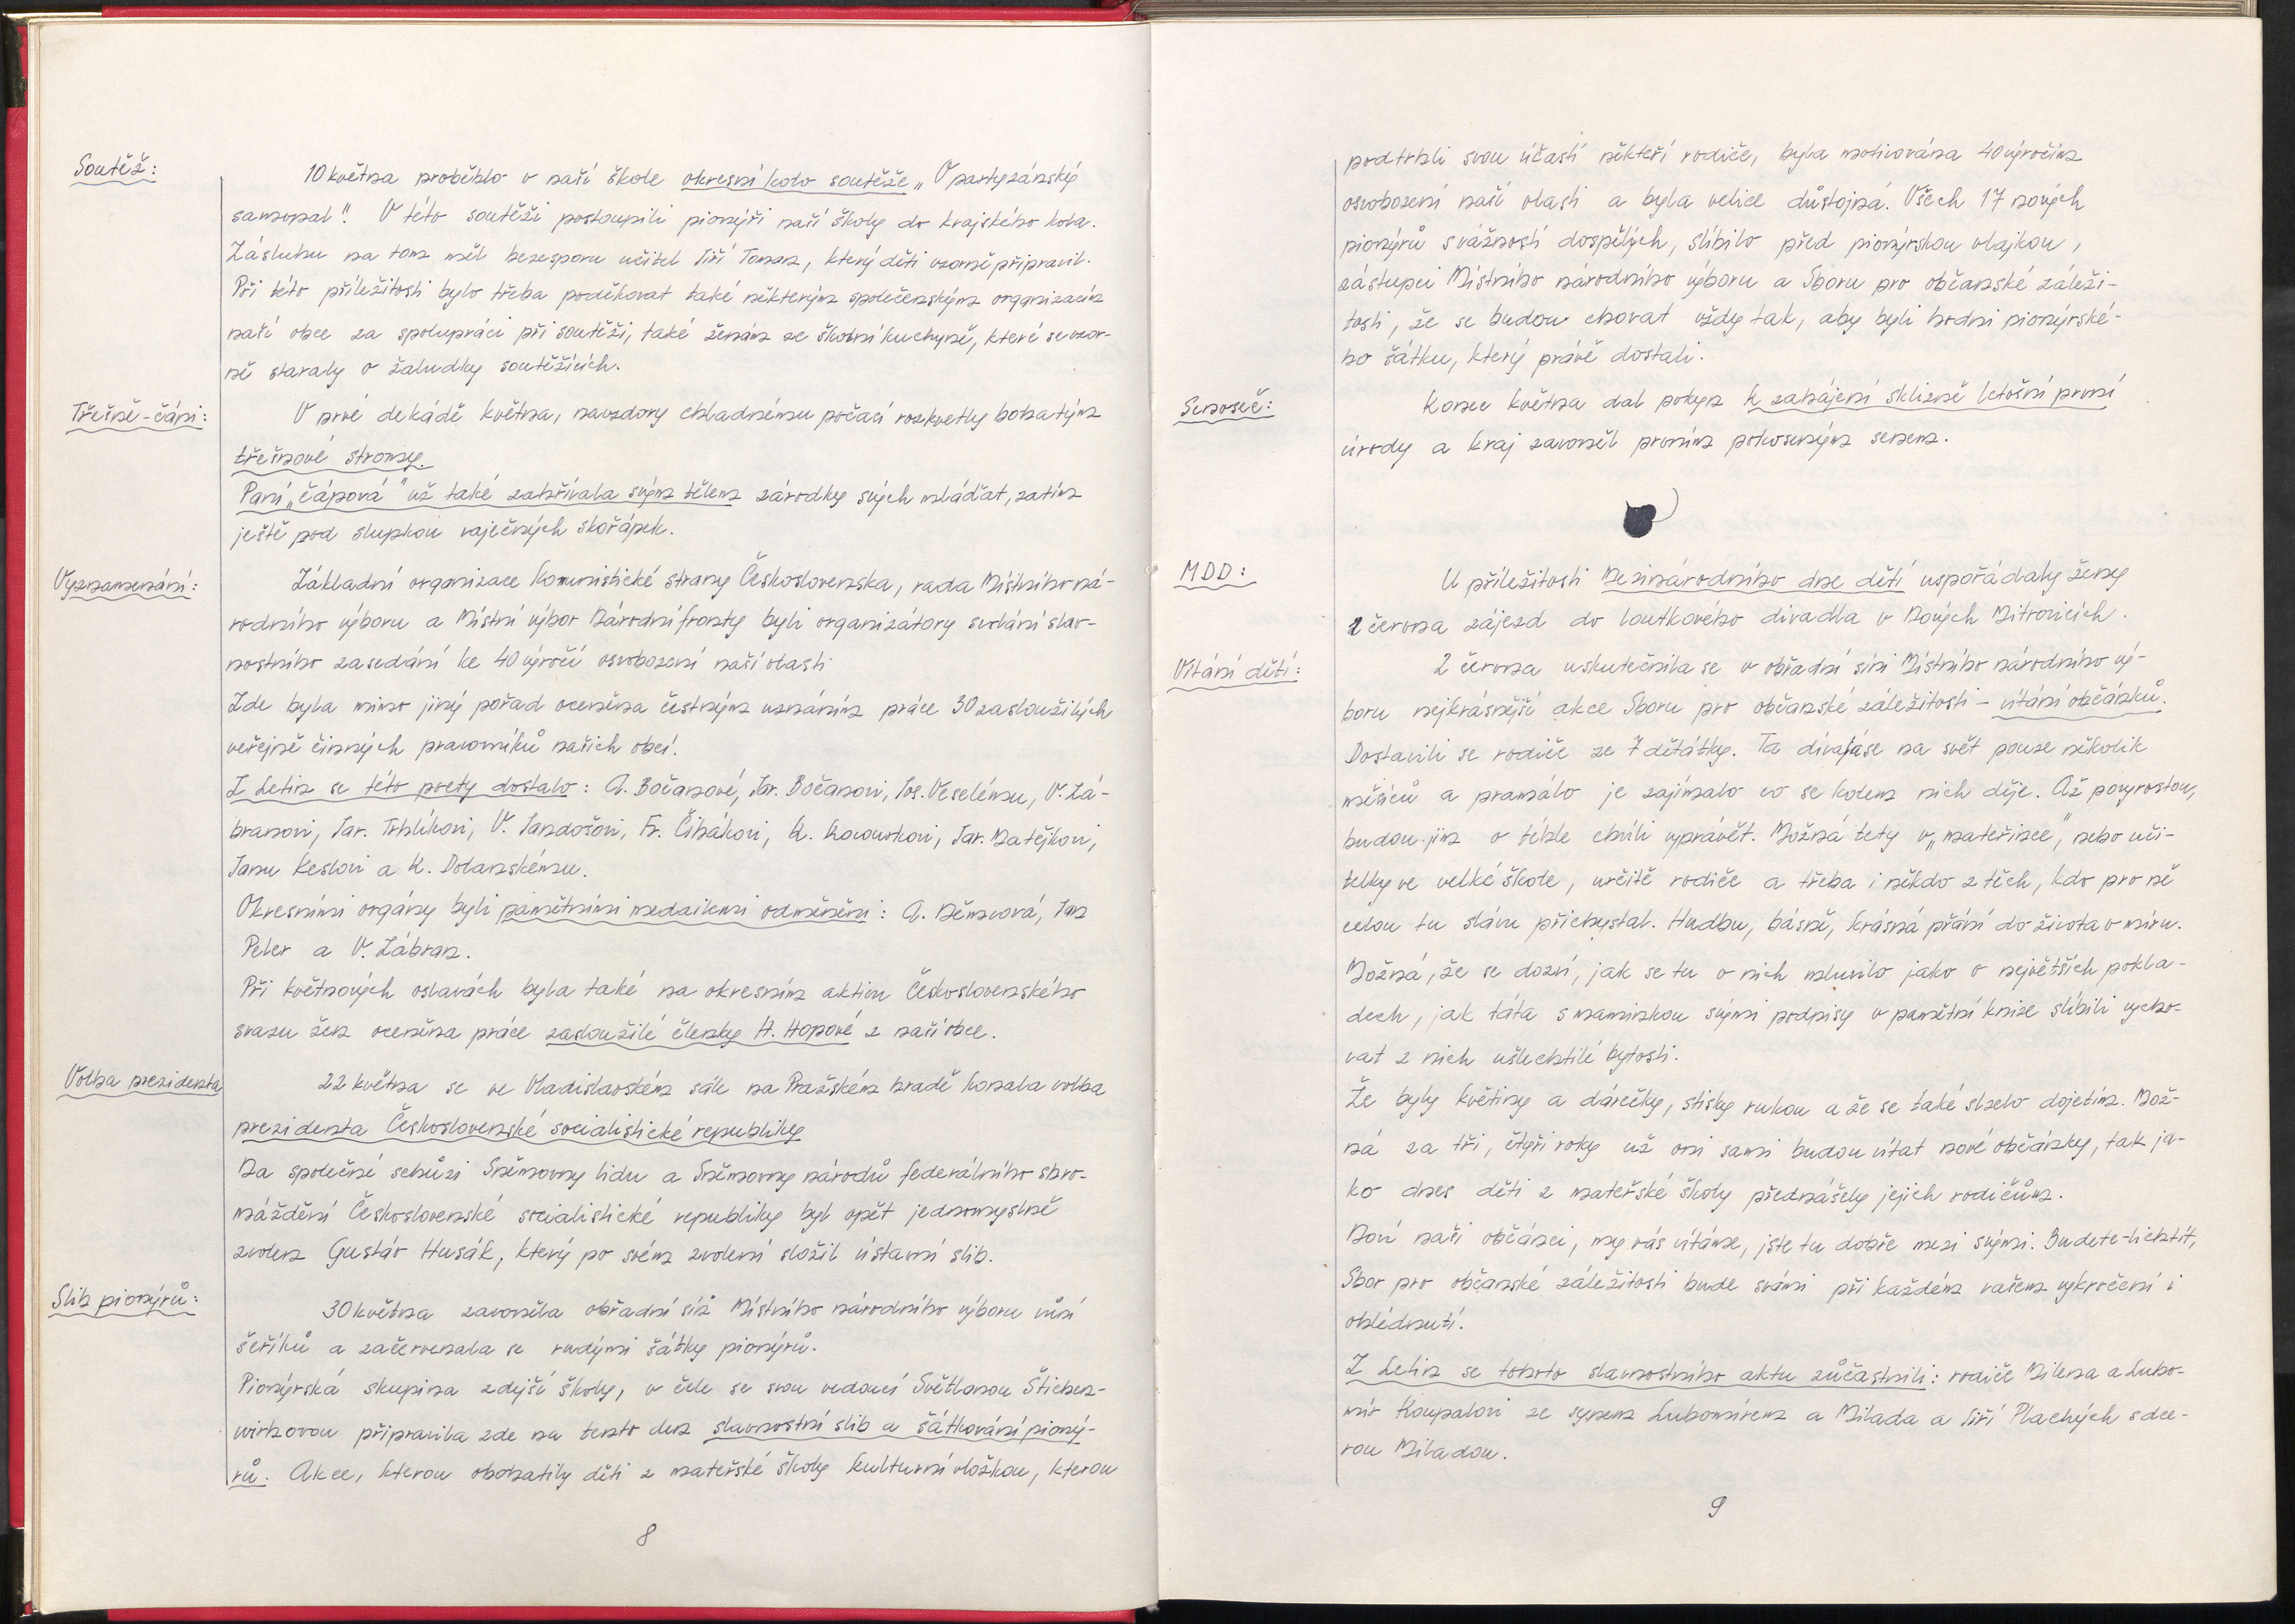 Soutěž:
10 května proběhlo v naší škole okresní kolo soutěže „O partyzánský
samopal". V této soutěži postoupili pionýři naší školy do krajského kola.
Zásluhu na tom měl bezesporu učitel Jiří Toman, který děti vzorně připravil.
Při této příležitosti bylo třeba poděkovat také některým společenským organizacím
naší obce za spolupráci při soutěži, také ženám ze školní kuchyně, které se vzor-
ně staraly o žaludky soutěžících.
Třešně-čápi:
V prvé dekádě května, navzdory chladnému počasí rozkvetly bohatým
třešňové stromy.
Paní „čápová" už také zahřívala svým tělem zárodky svých mláďat, zatím
ještě pod slupkou vaječných skořápek.
Vyznamenání:
Základní organizace Komunistické strany Československa, rada Místního ná-
rodního výboru a Místní výbor Národní fronty byli organizátory svolání slav-
nostního zasedání ke 40 výročí osvobození naší vlasti
Zde byla mimo jiný pořad oceněna čestným uznáním práce 30 zasloužilých
veřejně činných pracovníků našich obcí.
Z Letin se této pocty dostalo: A. Bočanové, Jar. Bočanovi, Jos. Veselému, V. Zá-
branovi, Jar. Trhlíkovi, V. Jandošovi, Fr. Čihákovi, K. Kocourkovi, Jar. Matějkovi,
Janu Keslovi a K. Dolanskému.
Okresními orgány byli pamětními medailemi odměněni: A. Němcová, Jan
Peler a V. Zábran.
Při květnových oslavách byla také na okresním aktivu Československého
svazu žen oceněna práce zasloužilé členky H. Hopové z naší obce.
Volba prezidenta
22 května se ve Vladislavském sále na Pražském hradě konala volba
prezidenta Československé socialistické republiky
Na společné schůzi Sněmovny lidu a Sněmovny národů federálního shro-
máždění Československé socialistické republiky byl opět jednomyslně
zvolen Gustáv Husák, který po svém zvolení složil ústavní slib.
Slib pionýrů:
30 května zavoněla obřadní síň Místního národního výboru vůní
šeříků a začervenala se rudými šátky pionýrů.
Pionýrská skupina zdejší školy, v čele se svou vedoucí Světlanou Štichen-
wirhovou připravila zde na tento den slavnostní slib a šátkování pioný-
rů. Akce, kterou obohatily děti z mateřské školy kulturní vložkou, kterou
8
podtrhli svou účastí někteří rodiče, byla motivována 40 výročím
osvobození naší vlasti a byla velice důstojná. Všech 17 nových
pionýrů s vážností dospělých, slíbilo před pionýrskou vlajkou,
zástupci Místního národního výboru a Sboru pro občanské záleži-
tosti, že se budou chovat vždy tak, aby byli hodni pionýrské-
ho šátku, který právě dostali.
Senoseč:
Konec května dal pokyn k zahájení sklizně letošní první
úrody a kraj zavoněl prvním pokoseným senem.
MDD:
U příležitosti Mezinárodního dne dětí uspořádaly ženy
1 června zájezd do loutkového divadla v Nových Mitrovicích.
Vítání dětí:
2 června uskutečnila se v obřadní síni Místního národního vý-
boru nejkrásnější akce Sboru pro občanské záležitosti – vítání občánků.
Dostavili se rodiče ze 7 děťátky. Ta dívala se na svět pouze několik
měsíců a pramálo je zajímalo co se kolem nich děje. Až povyrostou,
budou jim o téhle chvíli vyprávět. Možná tety v „mateřince", nebo uči-
telky ve velké škole, určitě rodiče a třeba i někdo z těch, kdo pro ně
celou tu slávu přichystal. Hudbu, básně, krásná přání do života v míru.
Možná, že se dozví, jak se tu o nich mluvilo jako o největších pokla-
dech, jak táta s maminkou svými podpisy v pamětní knize slíbili vycho-
vat z nich ušlechtilé bytosti.
Že byly květiny a dárečky, stisky rukou a že se také slzelo dojetím. Mož-
ná za tři, čtyři roky už oni sami budou vítat nové občánky, tak ja-
ko dnes děti z mateřské školy přednášely jejich rodičům.
Noví naši občánci, my vás vítáme, jste tu dobře mezi svými. Budete-li chtít,
Sbor pro občanské záležitosti bude s vámi při každém vašem vykročení i
ohlédnutí.
Z Letin se tohoto slavnostního aktu zúčastnili: rodiče Milena a Lubo-
mír Koupalovi ze synem Lubomírem a Milada a Jiří Plachých s dce-
rou Miladou.
9